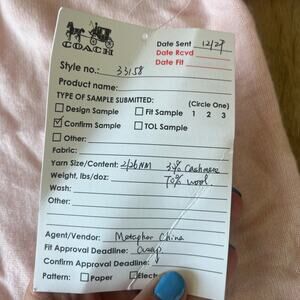 COACH
Date Sent 12/29
Date Rcvd
Date Fit
Style no.: 33158
Product name:
TYPE OF SAMPLE SUBMITTED: (Circle One)
Design Sample Fit Sample 1 2 3
Confirm Sample TOL Sample
Other:
Fabric:
Yarn Size/Content: 2/26NM 30% Cashmere
Weight, lbs/doz: 70% wool
Wash:
Other:
Agent/Vendor: China
Fit Approval Deadline:
Confirm Approval Deadline:
Pattern: Paper Elect